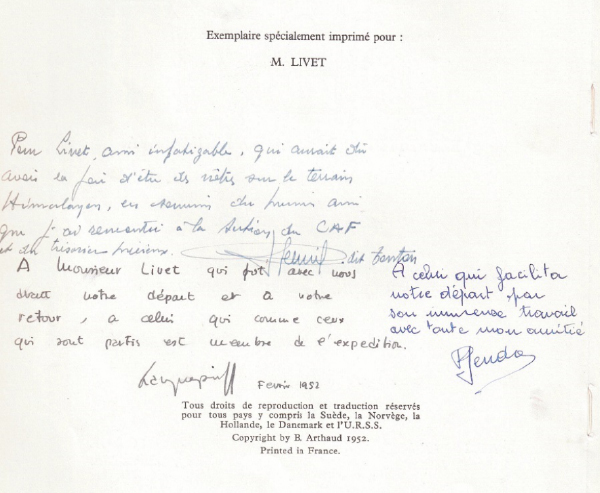 Exemplaire spécialement imprimé pour :
M. LIVET
Pour Livet, ami infatigable, qui aurait dû
avoir la joie d'être des nôtres sur le terrain
Himalayen, en souvenir du ami
que j'ai rencontré à la Section du CAF
et du trésorier précieux. dit
A Monsieur Livet qui fut avec nous
avant notre départ et à notre
retour, a celui qui comme ceux
qui sont partis est membre de l'expedition.
Fevrier 1952
A celui qui facilita
notre départ par
son immense travail
avec toute mon amitié
Tous droits de reproduction et traduction réservés
pour tous pays y compris la Suède, la Norvège, la
Hollande, le Danemark et l'U.R.S.S.
Copyright by B. Arthaud 1952.
Printed in France.